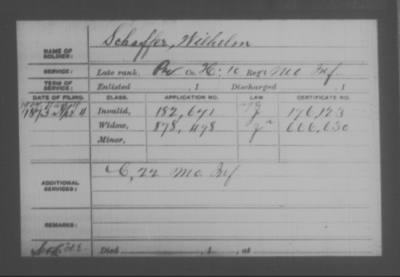 NAME OF SOLDIER: Schaffer, Wilhelm
SERVICE: Late rank, Co. H, 10 Reg't Mo Inf
TERM OF SERVICE: Enlisted , 1 Discharged , 1
DATE OF FILING. CLASS. APPLICATION NO. LAW CERTIFICATE NO.
Invalid, 182,671 176,123
Widow, 878,478 666,630
Minor,
ADDITIONAL SERVICES: C, 22 Mo Inf
REMARKS:
Died , 1 , at